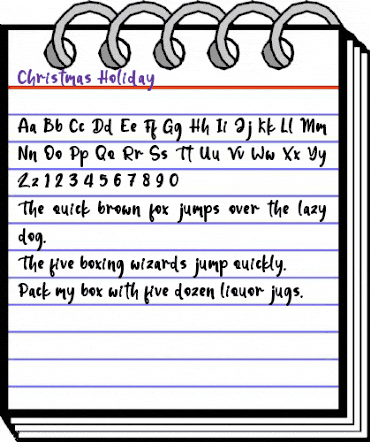 Christmas Holiday
Aa Bb Cc Dd Ee Ff Gg Hh Ii Jj Kk Ll Mm
Nn Oo Pp Qq Rr Ss Tt Uu Vv Ww Xx Yy
Zz 1 2 3 4 5 6 7 8 9 0
The quick brown fox jumps over the lazy
dog.
The five boxing wizards jump quickly.
Pack my box with five dozen liquor jugs.